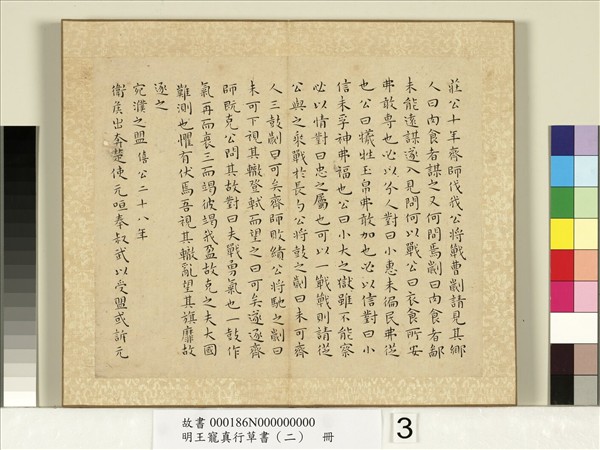 莊公十年齊師伐我公將戰曹劌請見其鄉
人曰肉食者謀之又何問焉劌曰肉食者鄙
未能遠謀遂入見問何以戰公曰衣食所安
弗敢專也必以分人對曰小惠未徧民弗從
也公曰犧牲玉帛弗敢加也必以信對曰小
信未孚神弗福也公曰小大之獄雖不能察
必以情對曰忠之屬也可以一戰戰則請從
公與之乘戰於長勺公將鼓之劌曰未可齊
人三鼓劌曰可矣齊師敗績公將馳之劌曰
未可下視其轍登軾而望之曰可矣遂逐齊
師既克公問其故對曰夫戰勇氣也一鼓作
氣再而衰三而竭彼竭我盈故克之夫大國
難測也懼有伏焉吾視其轍亂望其旗靡故
逐之
宛濮之盟 僖公二十八年
衛矦出奔楚使元咺奉叔武以受盟或訴元
故書 000186N000000000
明王寵真行草書（二） 冊
3